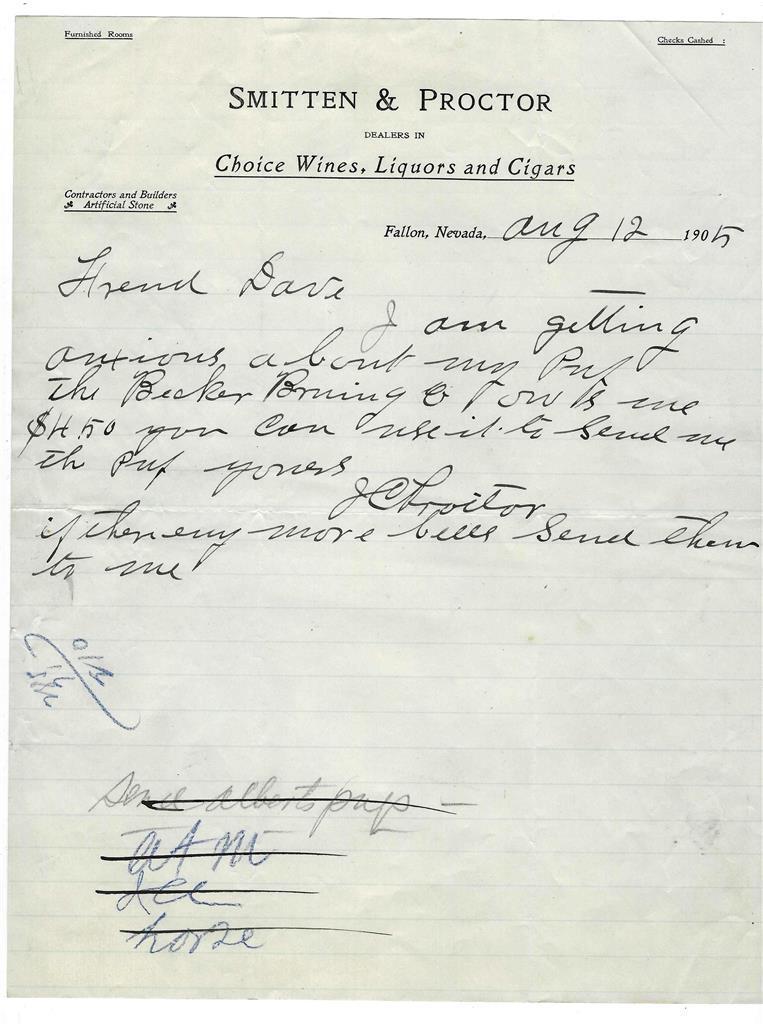 Furnished Rooms
Checks Cashed :
SMITTEN & PROCTOR
DEALERS IN
Choice Wines, Liquors and Cigars
Contractors and Builders
Artificial Stone
Fallon, Nevada, Aug 12 1905
Frend Dave
I am getting
anxious about my Pup
the Becker Bruing Co ows me
$4.50 you can use it to send me
th Pup yours
J C Proctor
if ther eny more bills send them
to me
Send alberts pup —
horse